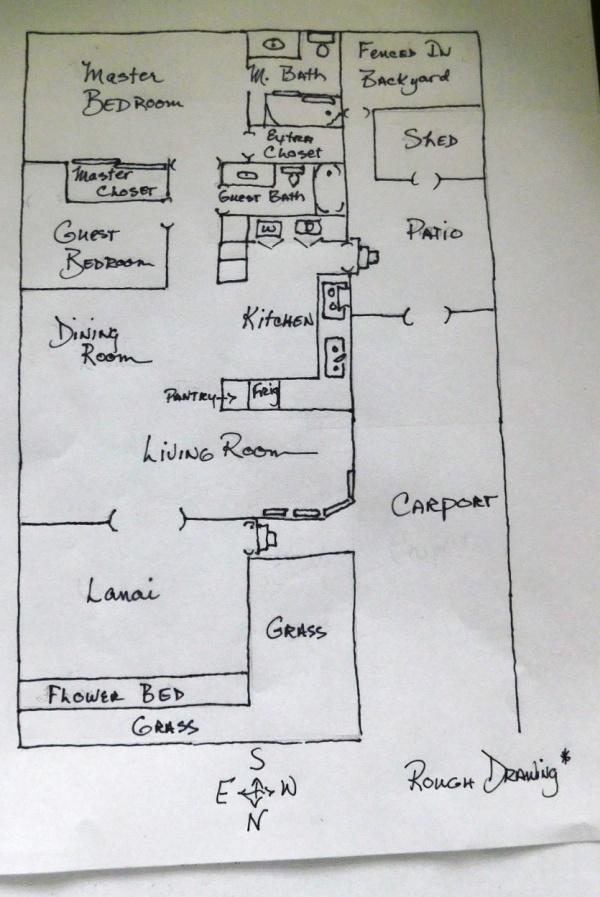 Master
BEDROOM
M. Bath
FENCED IN
BACKyARD
EXTRA
Closet
SHED
Master
CLOSET
GUEST Bath
W
D
GUEST
BEDROOM
PATIO
KitCHEN
DINING
ROOM
PANTRY
Frig
LIVING ROOM
CARPORT
Lanai
GRASS
FLOWER BED
GRASS
S
E W
N
ROUGH DRAWING*